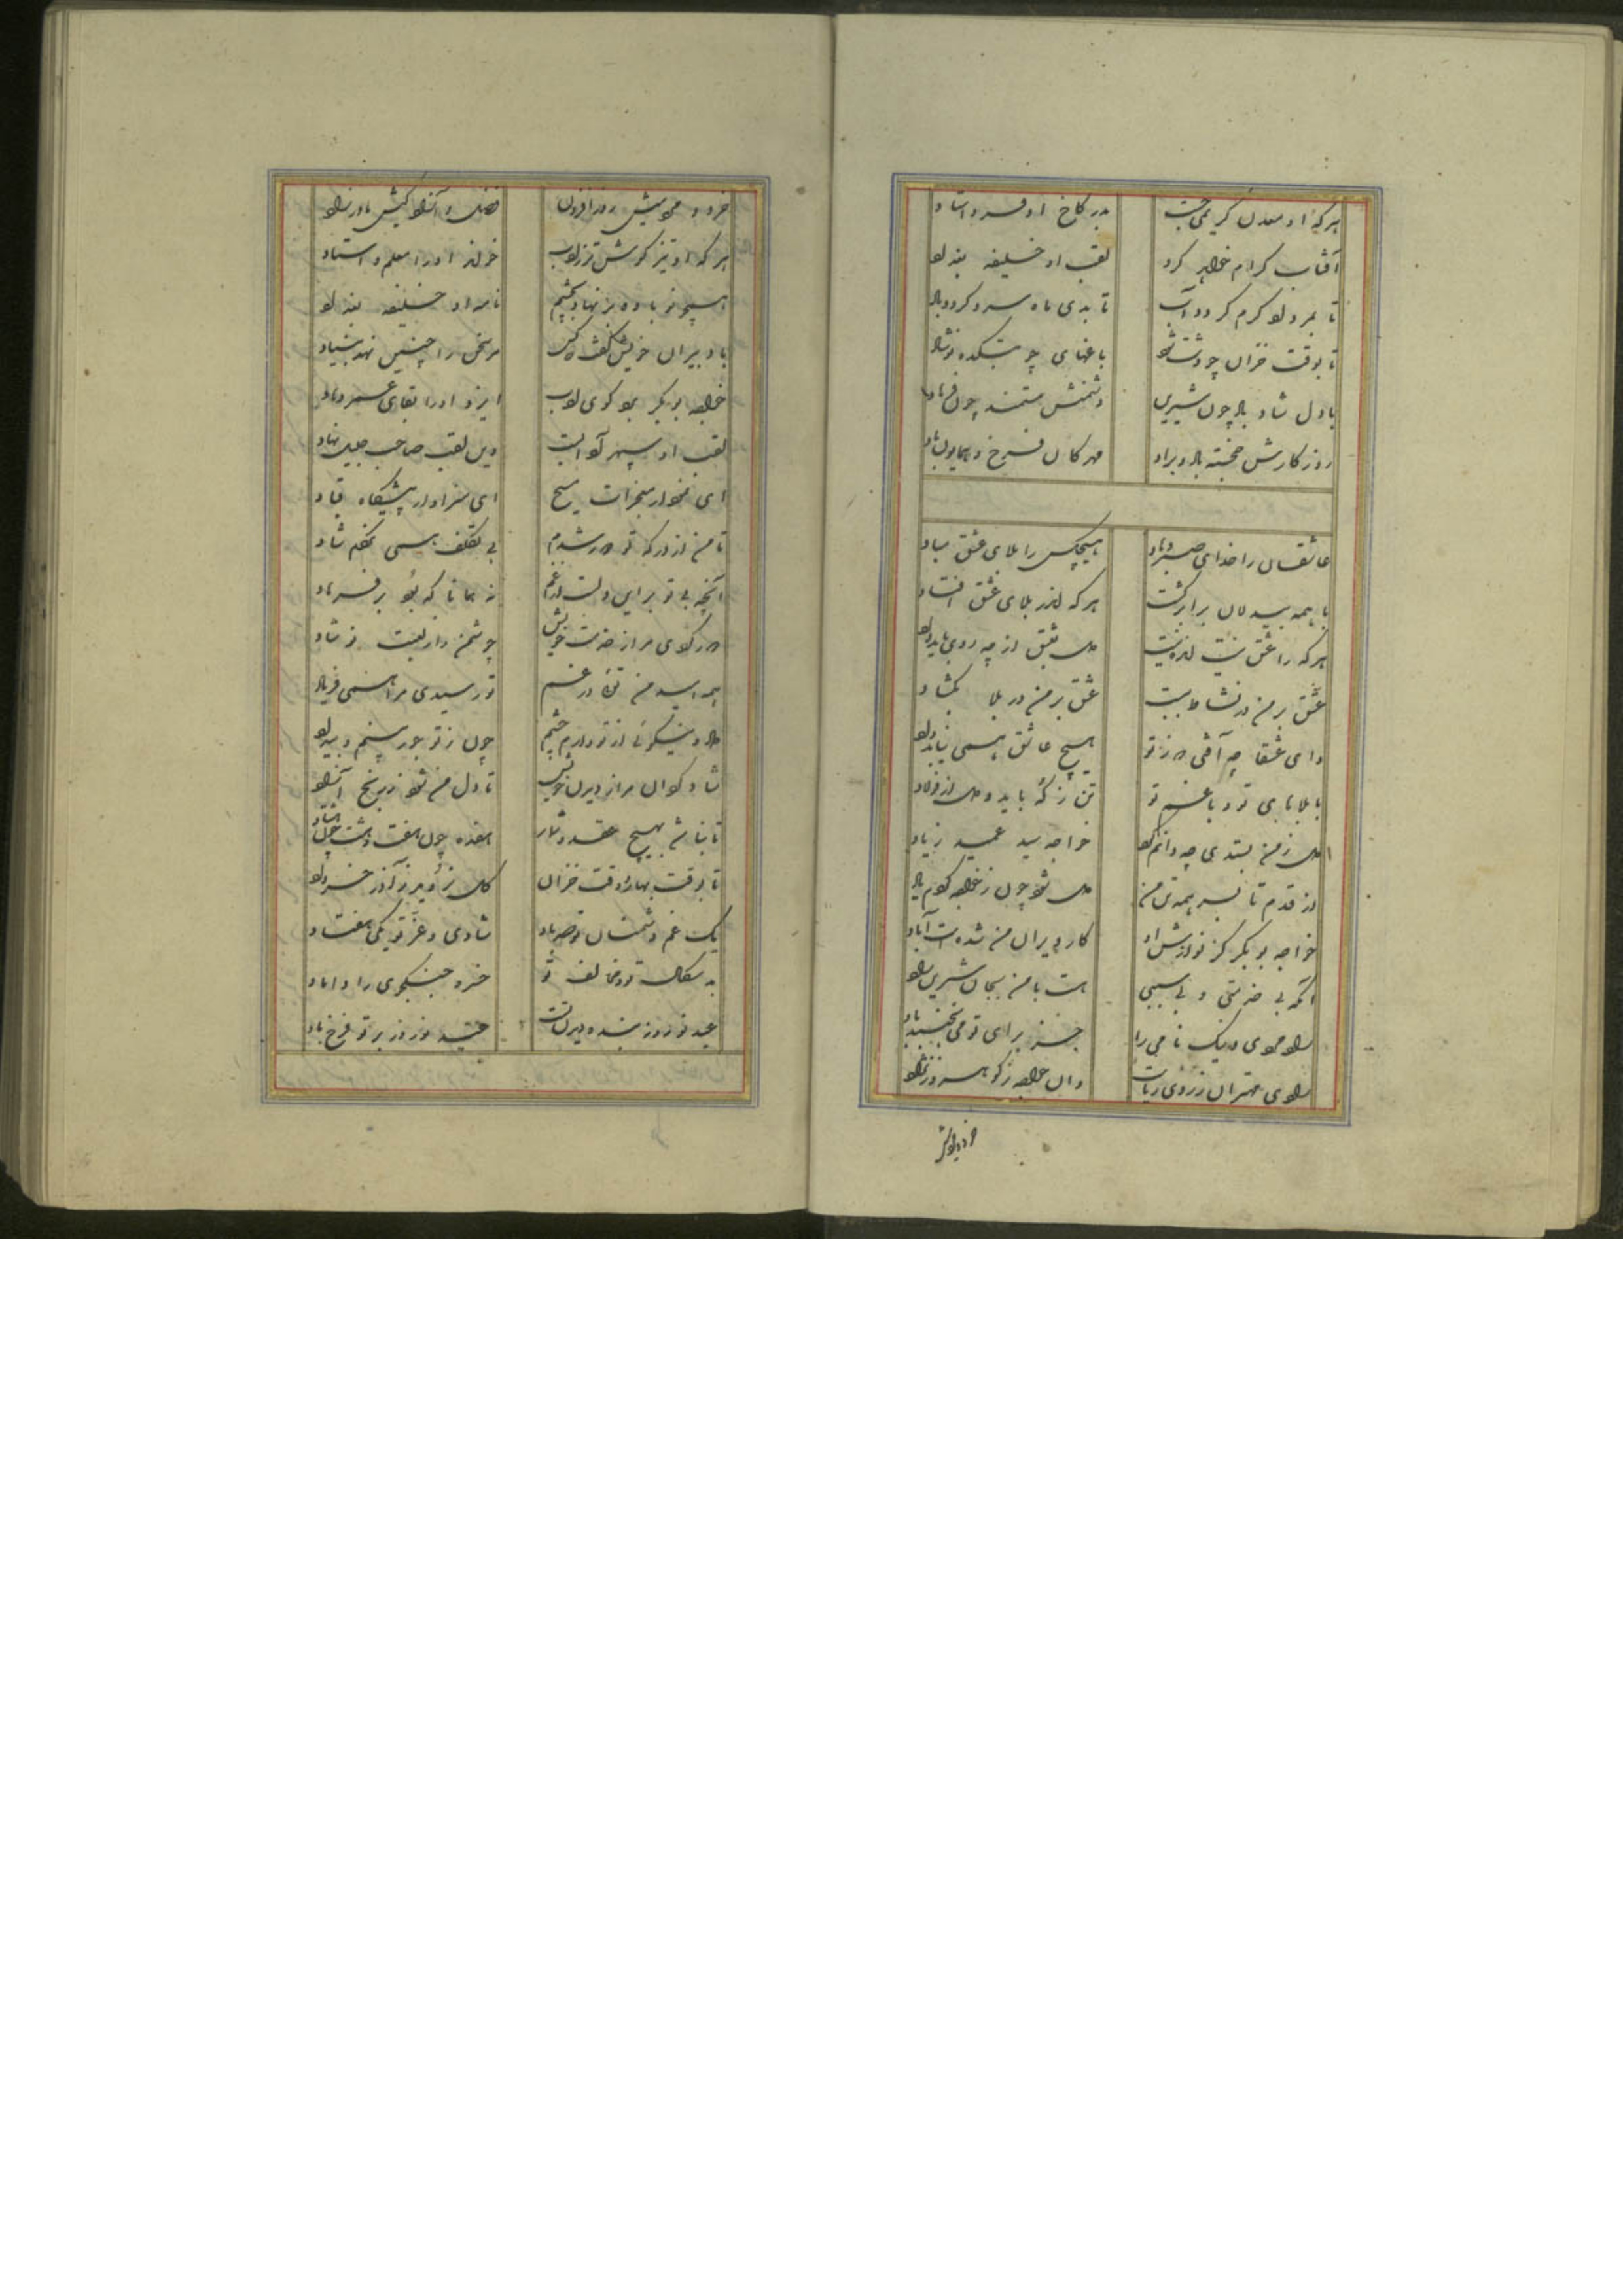 هر که او معدن کریمی جست
بدر کاخ او فرو استاد
آفتاب کرام خواهد کرد
لقب او خلیفه بغداد
تا بمرداد گرم گردد آب
تا بدی ماه سرد گردد باد
تا بوقت خزان چو دشت شود
باغهای چو بتکده نوشاد
بادل شاد باد چون شیرین
دشمنش مستمند چون فرهاد
روزگارش خجسته باد و براد
مهرکان فرخ و همایون باد
عاشقان را خدای صبر دهاد
هیچکس را بلای عشق مباد
با همه بیدلان برابر گشت
هر که اندر بلای عشق افتاد
هر که را عشق نیست انده نیست
دل بعشق از چه روی باید داد
عشق بر من در نشاط ببست
عشق بر من در بلا بگشاد
وای عشقا چه آفتی که ز تو
هیچ عاشق همی نیابد داد
با بلاهای تو و با غم تو
تن ز که باید و دل از فولاد
دل ز من بستدی چه دانم کرد
خواجه سید عمید زیاد
از قدم تا بسر همه تن من
دل شود چون ز خواجه گویم یاد
خواجه بوبکر کز نوازش او
کار ویران من شده ست آباد
آنکه بی خدمتی و بی سببی
هست با من بجان شیرین راد
راه جوی و نیک نامی را
جز برای تو می نجنبد باد
سوی مهتران ز روی
وان خواجه ز گوهر و ز نژاد
خرد و جودش روز افزون
فضل و آزاد گیش مادرزاد
هر که او تیز گوش تر ز ادب
خواند او را معلم و استاد
هیچ نو باوه بر نهاد بچشم
نامه او خلیفه بغداد
با دبیران خویش گفت که کس
مر سخن را چنین نهد بنیاد
خواجه بوبکر بود کوی ادب
ایزد او را بقای عمر دهاد
لقب او سپهر آداب
وین لقب صاحب جلیل نهاد
ای نمودار معجزات مسیح
ای سزاوار پیشگاه قباد
تا من از درگه تو دور شدم
بی تکلف همی نخندم شاد
آنچه بی تو برین دلست از غم
نه همانا که بود بر فرهاد
دور کردی مرا ز خدمت خویش
چو شمن را ز لعبت نوشاد
همه امید من تویی در غم
تو رسیدی مرا همی فریاد
داد و نیکوئی از تو دارم چشم
چون ز تو جور بینم و بیداد
شاد گردان مرا ز دیدن خویش
تا دل من شود ز رنج آزاد
تا نباشد بهیچ عقد و شمار
هفده چون هفت و هشت چون هشتاد
تا بوقت بهار و وقت خزان
گل ز آذر خرداد
یک غم دشمنان تو صد باد
شادی و عز تو یکی هفتاد
بد سکال تو و مخالف تو
خسرو جنگجوی را داماد
عید نوروز بنده دیدن تست
عید نوروز بر تو فرخ باد